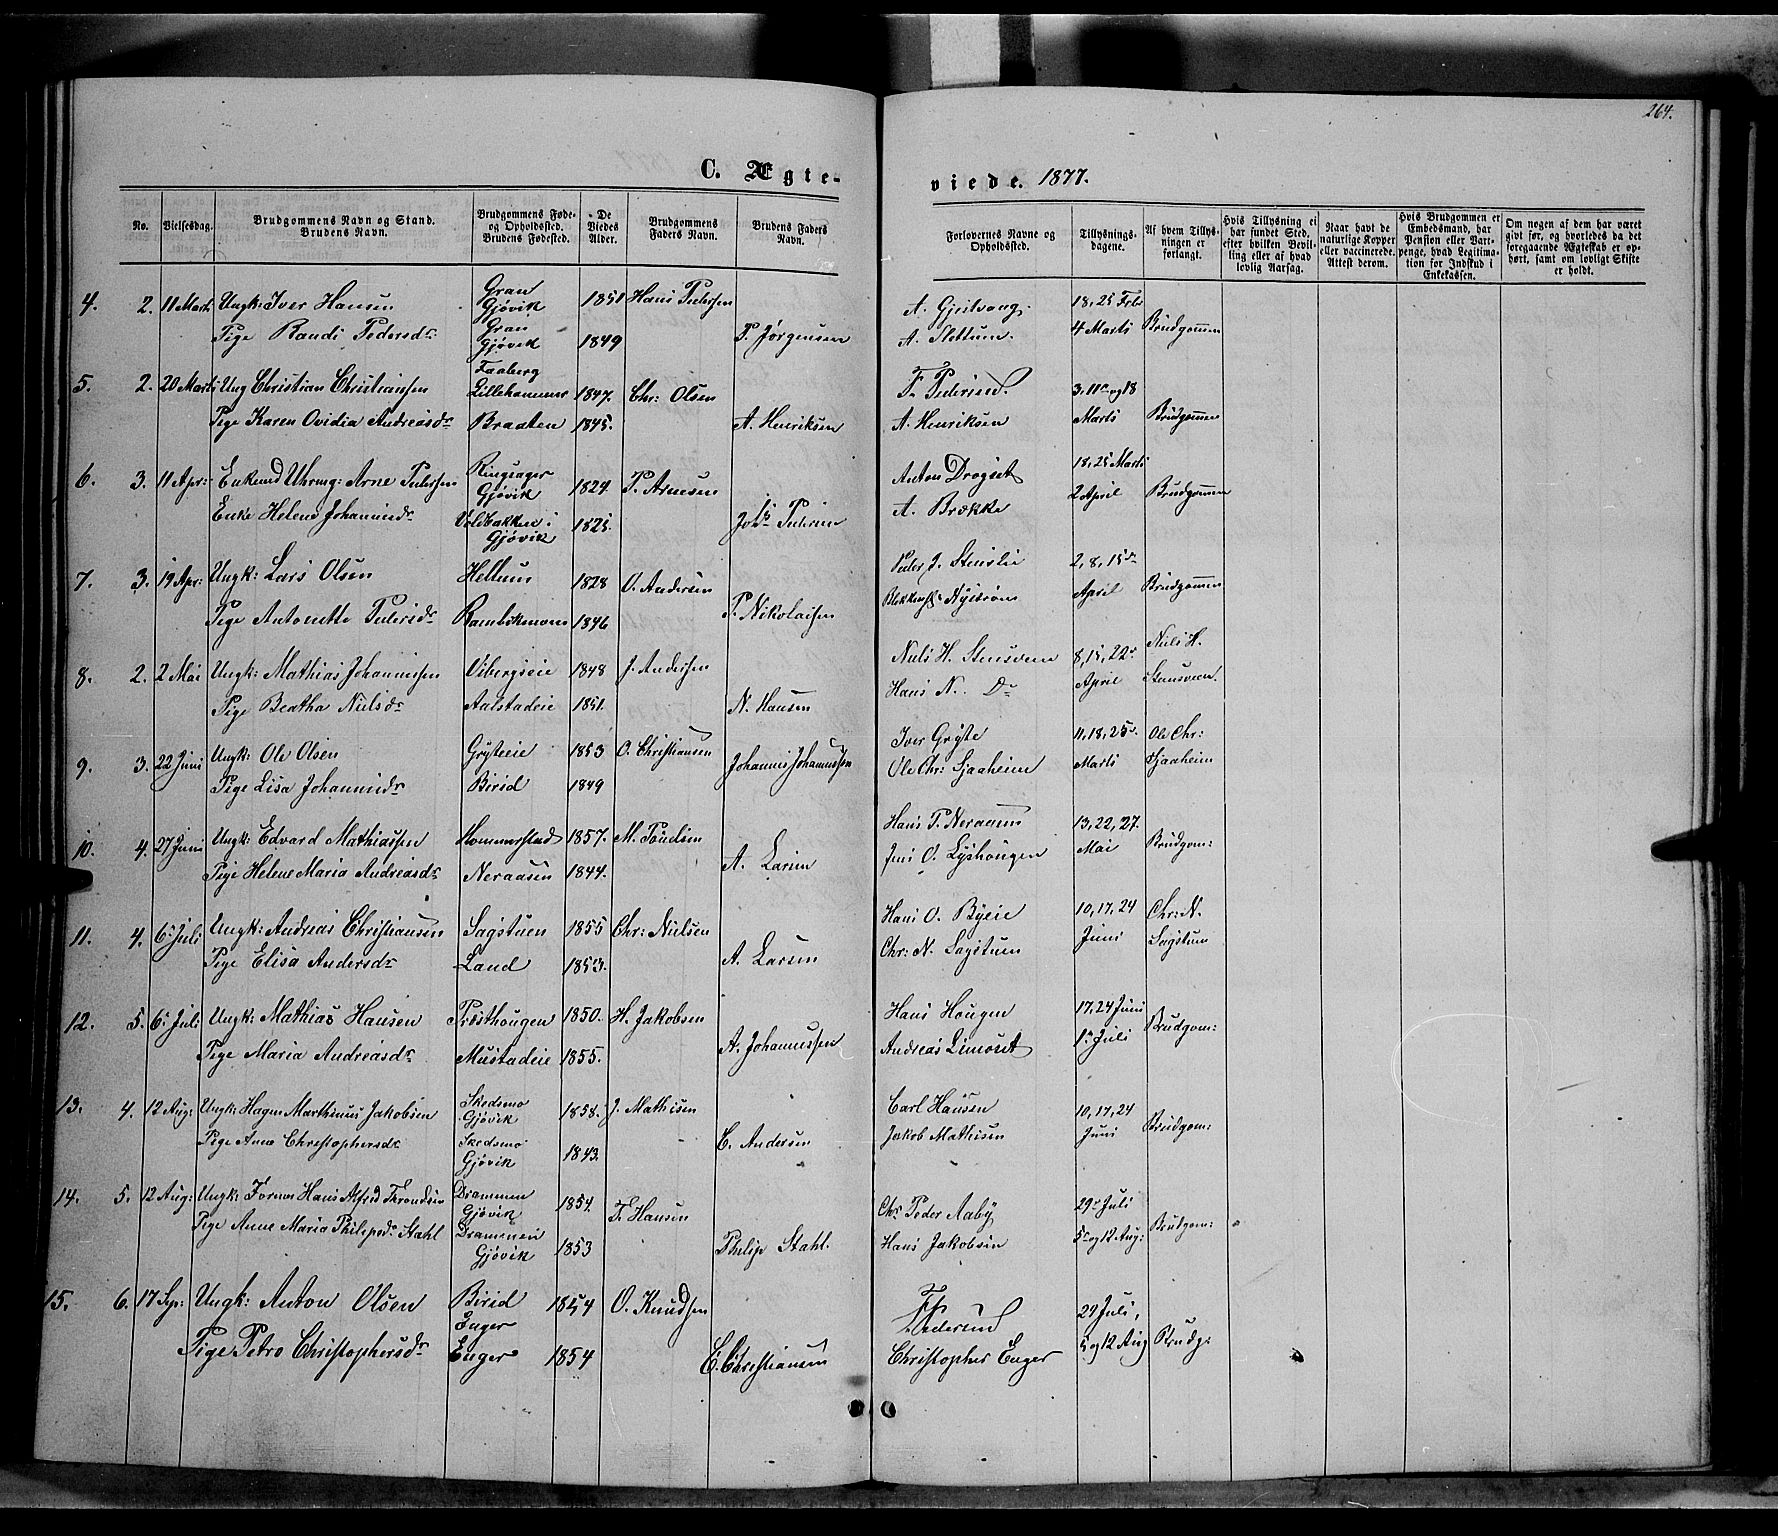 264.
C. Ægte-
viede. 1877.
No.
Vielsesdag.
Brudgommens Navn og Stand.
Brudens Navn.
Brudgommens Føde-
og Opholdssted.
Brudens Fødested.
De
Viedes
Alder.
Brudgommens
Faders Navn.
Brudens Faders
Navn.
Forlovernes Navne og
Opholdssted.
Tillysnings-
dagene.
Af hvem Tillys-
ningen er
forlangt.
Hvis Tillysning ei
har fundet Sted,
efter hvilken Bevil-
ling eller af hvad
lovlig Aarsag.
Naar havt de
naturlige Kopper
eller vaccinerede.
Attest derom.
Hvis Brudgommen er
Embedsmand, har
Pension eller Vart-
penge, hvad Legitima-
tion for Indskud i
Enkekassen.
Om nogen af dem har været
givt før, og hvorledes da det
foregaaende Ægteskab er op-
hørt, samt om lovligt Skifte
er holdt.
4. 2. 11 Marts Ungk: Iver Hansen Gran Gjøvik 1851 Hans Pedersen A. Gjeilvang. 18, 25 Febr
Pige Randi Pedersdr Gran Gjøvik 1849 P. Jørgensen A. Slettum. 4 Marts Brudgommen
5. 2. 20 Marts Ung Christian Christiansen Faaberg Lillehammer 1847. Chr: Olsen F. Pedersen 3, 11te og 18
Pige Karen Ovidia Andreasdr Braaten 1845. A. Henriksen A. Henriksen Marts Brudgommen
6. 3. 11 Apr: Enkemd Uhrmg: Arne Pedersen Ringsager Gjøvik 1824 P. Arnesen Anton Drogset 18, 25 Marts
Enke Helene Johannisdr Voldbakken i Gjøvik 1825. Johs Pedersen A. Brække 2 April Brudgommen
7. 3. 19 Apr: Ungk: Lars Olsen Hellum 1828 O. Andersen Peder J. Stenslie 2, 8, 15de
Pige Antonette Pedersdr 1846 P. Nikolaisen Nystrøm April Brudgommen
8. 2. 2 Mai Ungk: Mathias Johannissen Vibergseie 1848 J. Andersen Niels H. Stensveen 8, 15, 22de Niels H.
Pige Beatha Nielsdr Aalstadeie 1851. N. Hansen Hans N. Do April Stensveen.
9. 3. 22 Juni Ungk: Ole Olsen Grytteie 1853 O. Christiansen Iver Gryte 11, 18, 25de Ole Chr:
Pige Lisa Johannisdr Birid 1849 Johannis Johannissen Ole Chr: Sjaaheim Marts Sjaaheim
10. 4. 27 Juni Ungk: Edvard Mathiassen Hommerstad 1857. M. Poulsen Hans P. Neraasen 13, 22, 27.
Pige Helene Maria Andreasdr Neraasen 1844. A. Larsen Jens O. Lyshougen Mai Brudgom:
11. 4. 6te Juli Ungk: Andreas Christiansen Sagstuen 1855 Chr: Nielsen Hans O. Byeie 10, 17, 24 Chr: N.
Pige Elisa Andersdr Land 1853. A. Larsen Chr: N. Sagstuen Juni Sagstuen
12. 5. 6te Juli Ungk: Mathias Hansen Præsthougen 1850. H. Jakobsen Hans Hougen 17, 24 Juni
Pige Maria Andreasdr Mustadeie 1855. A. Johannessen Andreas 1te Juli Brudgom:
13. 4. 12 Aug: Ungk: Hagen Marthinius Jakobsen Skedsmo Gjøvik 1858. J. Mathisen Carl Hansen 10, 17, 24
Pige Anne Christophersdr Skedsmo Gjøvik 1843. C. Andersen Jakob Mathisen Juni Brudgom:
14. 5. 12 Aug: Ungk: Former Hans Alfred Throndsen Drammen Gjøvik 1854. F. Hansen Chr Peder Aaby 29de Juli
Pige Anne Maria Philipsdr Stahl Drammen Gjøvik 1853 Philip Stahl. Hans Jakobsen 5te og 12 Aug: Brudgom:
15. 6. 17 Sep: Ungk: Anton Olsen Birid Enger 1854 O. Knudsen F. Pedersen 29 Juli,
Pige Petro Christophersdr Enger 1854 C. Christiansen Christopher Enger 5 og 12 Aug Brudg: